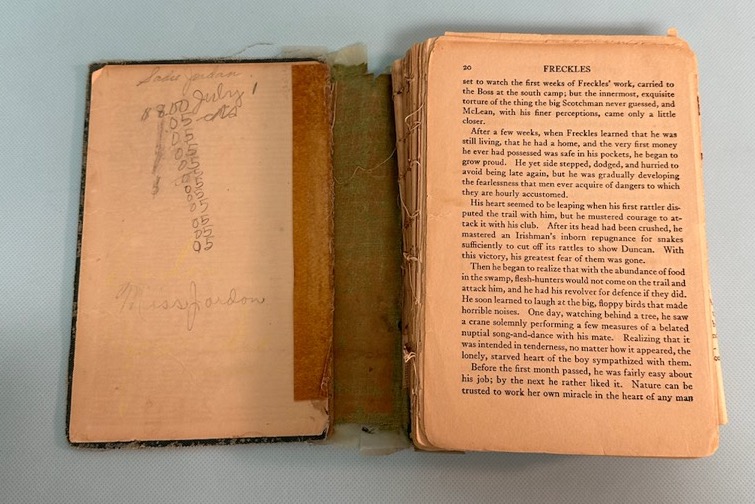 Sadie Jordan.
July 1
8.00
05
05
05
05
05
05
05
05
05
05
05
Miss Jordon
20 FRECKLES
set to watch the first weeks of Freckles' work, carried to
the Boss at the south camp; but the innermost, exquisite
torture of the thing the big Scotchman never guessed, and
McLean, with his finer perceptions, came only a little
closer.
After a few weeks, when Freckles learned that he was
still living, that he had a home, and the very first money
he ever had possessed was safe in his pockets, he began to
grow proud. He yet side stepped, dodged, and hurried to
avoid being late again, but he was gradually developing
the fearlessness that men ever acquire of dangers to which
they are hourly accustomed.
His heart seemed to be leaping when his first rattler dis-
puted the trail with him, but he mustered courage to at-
tack it with his club. After its head had been crushed, he
mastered an Irishman's inborn repugnance for snakes
sufficiently to cut off its rattles to show Duncan. With
this victory, his greatest fear of them was gone.
Then he began to realize that with the abundance of food
in the swamp, flesh-hunters would not come on the trail and
attack him, and he had his revolver for defence if they did.
He soon learned to laugh at the big, floppy birds that made
horrible noises. One day, watching behind a tree, he saw
a crane solemnly performing a few measures of a belated
nuptial song-and-dance with his mate. Realizing that it
was intended in tenderness, no matter how it appeared, the
lonely, starved heart of the boy sympathized with them.
Before the first month passed, he was fairly easy about
his job; by the next he rather liked it. Nature can be
trusted to work her own miracle in the heart of any man